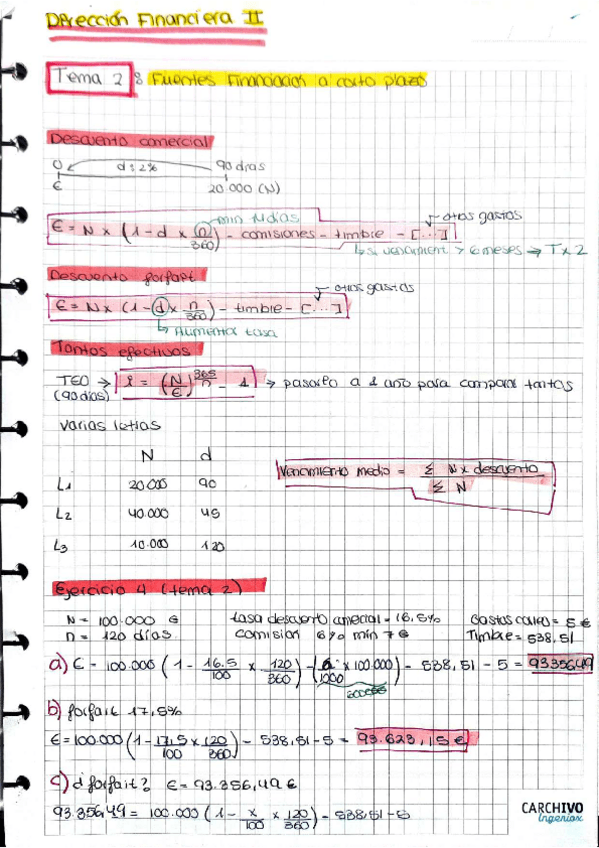 Dirección Financiera II
Tema 2: Fuentes Financiación a corto plazo
Descuento comercial
0 d=2% 90 días
E 20.000 (N)
min N días otros gastos
E = N x (1 - d x n/360) - comisiones - timbre - [...]
↳ si vencimient > 6 meses → T x 2
Descuento forfait
otros gastos
E = N x (1 - d x n/360) - timbre - [...]
↳ Aumentar tasa
Tantos efectivos
TEO → i = (N/E)^365/n - 1 → pasarlo a 1 año para comparar tantos
(90 días)
varias letras
N d
Vencimiento medio = Σ N x descuento / Σ N
L1 20.000 90
L2 40.000 45
L3 10.000 120
Ejercicio 4 (tema 2)
N = 100.000 € tasa descuento comercial = 16,5% Gastos correo = 5 €
n = 120 días comisión 6% min 7 € Timbre = 538,51
a) E = 100.000 (1 - 16,5/100 x 120/360) - (6/1000 x 100.000) - 538,51 - 5 = 93356,49
b) forfait 17,5%
E = 100.000 (1 - 17,5/100 x 120/360) - 538,51 - 5 = 93.623,15 €
c) d forfait? E = 93.356,49 €
93.356,49 = 100.000 (1 - x/100 x 120/360) - 538,51 - 5
CARCHIVO
Ingeniox